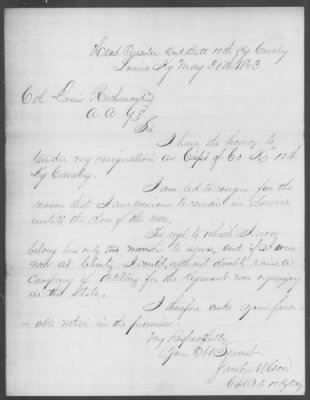 Head Quarter 2nd Batt 10th Ky Cavalry
Louisa Ky May 30th 1863
Col Louis Richmond
A A G
Sir
I have the honor to
tender my resignation as Capt of Co "K" 10th
Ky Cavalry.
I am led to resign for the
reason that I am anxious to remain in Service
untill the close of the war.
The regt to which I now
belong has only two months to serve, and if I were
now at liberty I could, without doubt, raise a
Company of Artillery for the Regiment now organizing
in this State.
I therefore ask your favor-
-able notice in the premises.
Very Respectfully
Your Obt Servant
Jacob Wilson
Capt Co K 10 Ky Cav